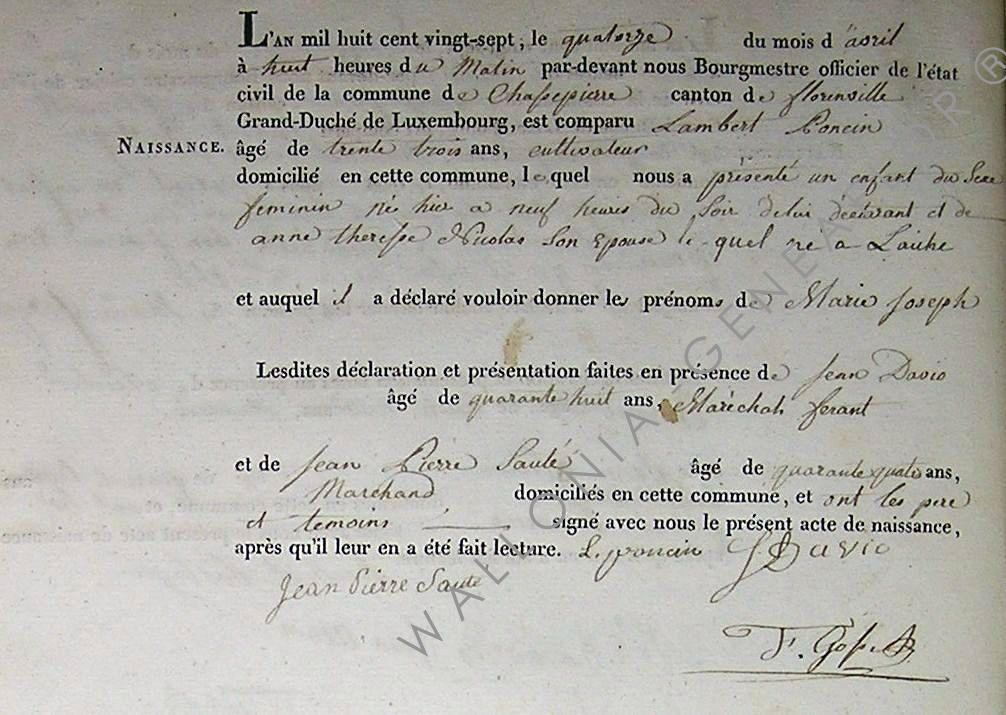 L'AN mil huit cent vingt-sept, le quatorze du mois d'avril
à huit heures du Matin par-devant nous Bourgmestre officier de l'état
civil de la commune de Chassepierre canton de florenville
Grand-Duché de Luxembourg, est comparu Lambert Poncin
NAISSANCE. âgé de trente trois ans, cultivateur
domicilié en cette commune, lequel nous a présenté un enfant du Sexe
feminin né hier a neuf heures du Soir de lui déclarant et de
anne theresse Nicolas Son Epouse le quel né a Laiche
et auquel il a déclaré vouloir donner les prénoms de Marie Joseph
Lesdites déclaration et présentation faites en présence de Jean Davio
âgé de quarante huit ans, Maréchal ferant
et de Jean Pierre Sauté âgé de quarante quatre ans,
Marchand domiciliés en cette commune, et ont les pere
et temoins signé avec nous le présent acte de naissance,
après qu'il leur en a été fait lecture. L. poncin J Davio
Jean Pierre Sauté
WALLONIA GENEA